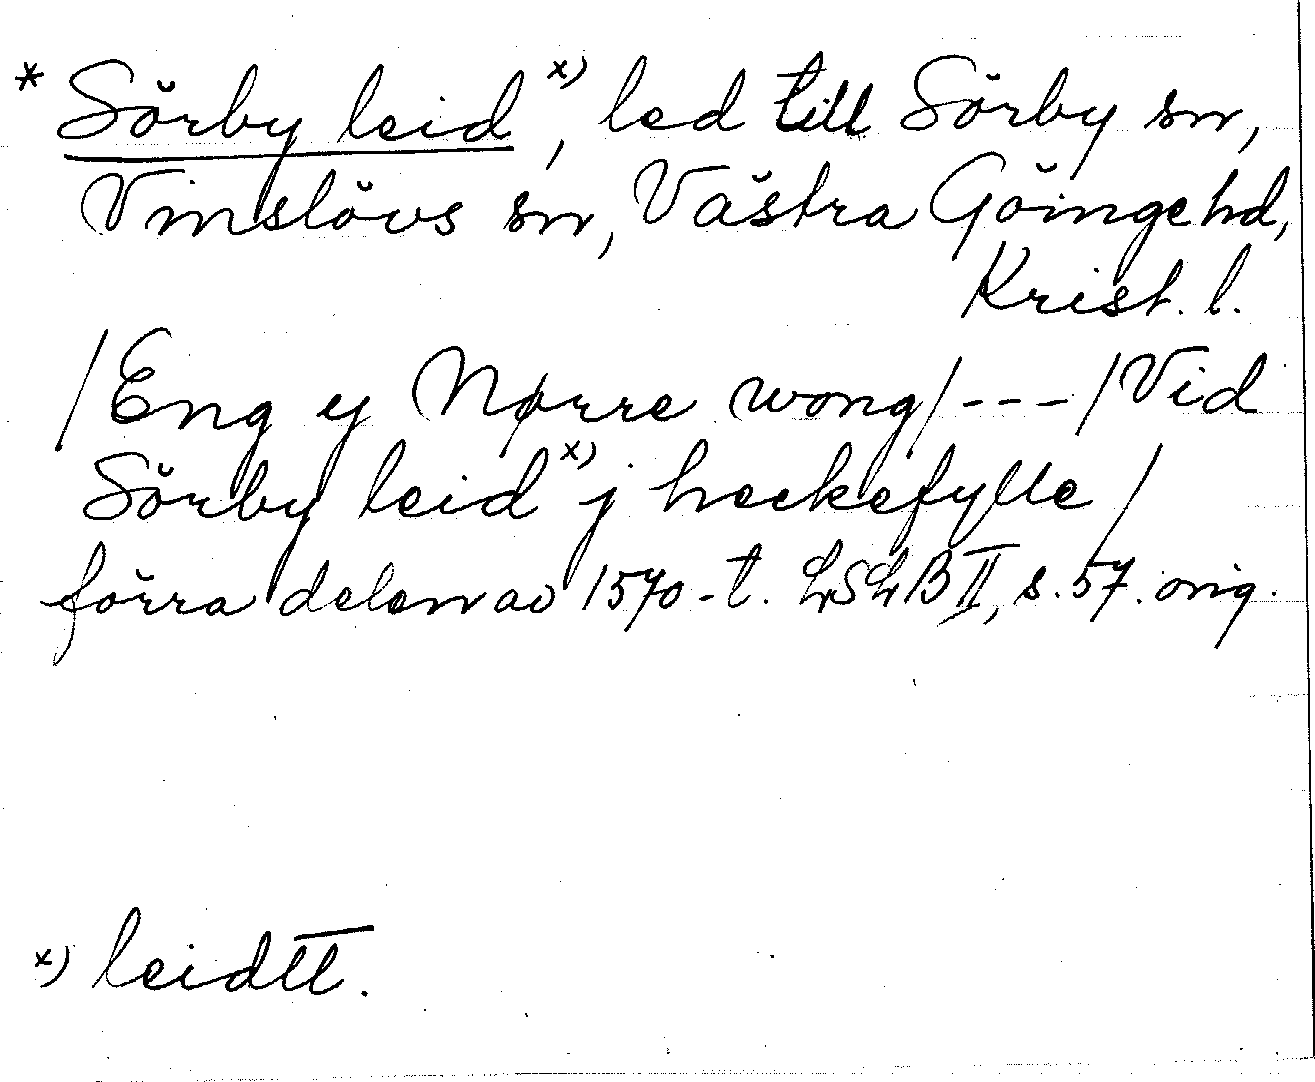 * Sörby leid x), led till Sörby sn,
Vinslövs sn, Västra Göinge hd,
Krist. l.
/Eng y Nørre wong/---/Vid
Sörby leid x) j heckefylle/
förra delen av 1570-t. LSLB II, s. 57. orig.
x) leidtt.